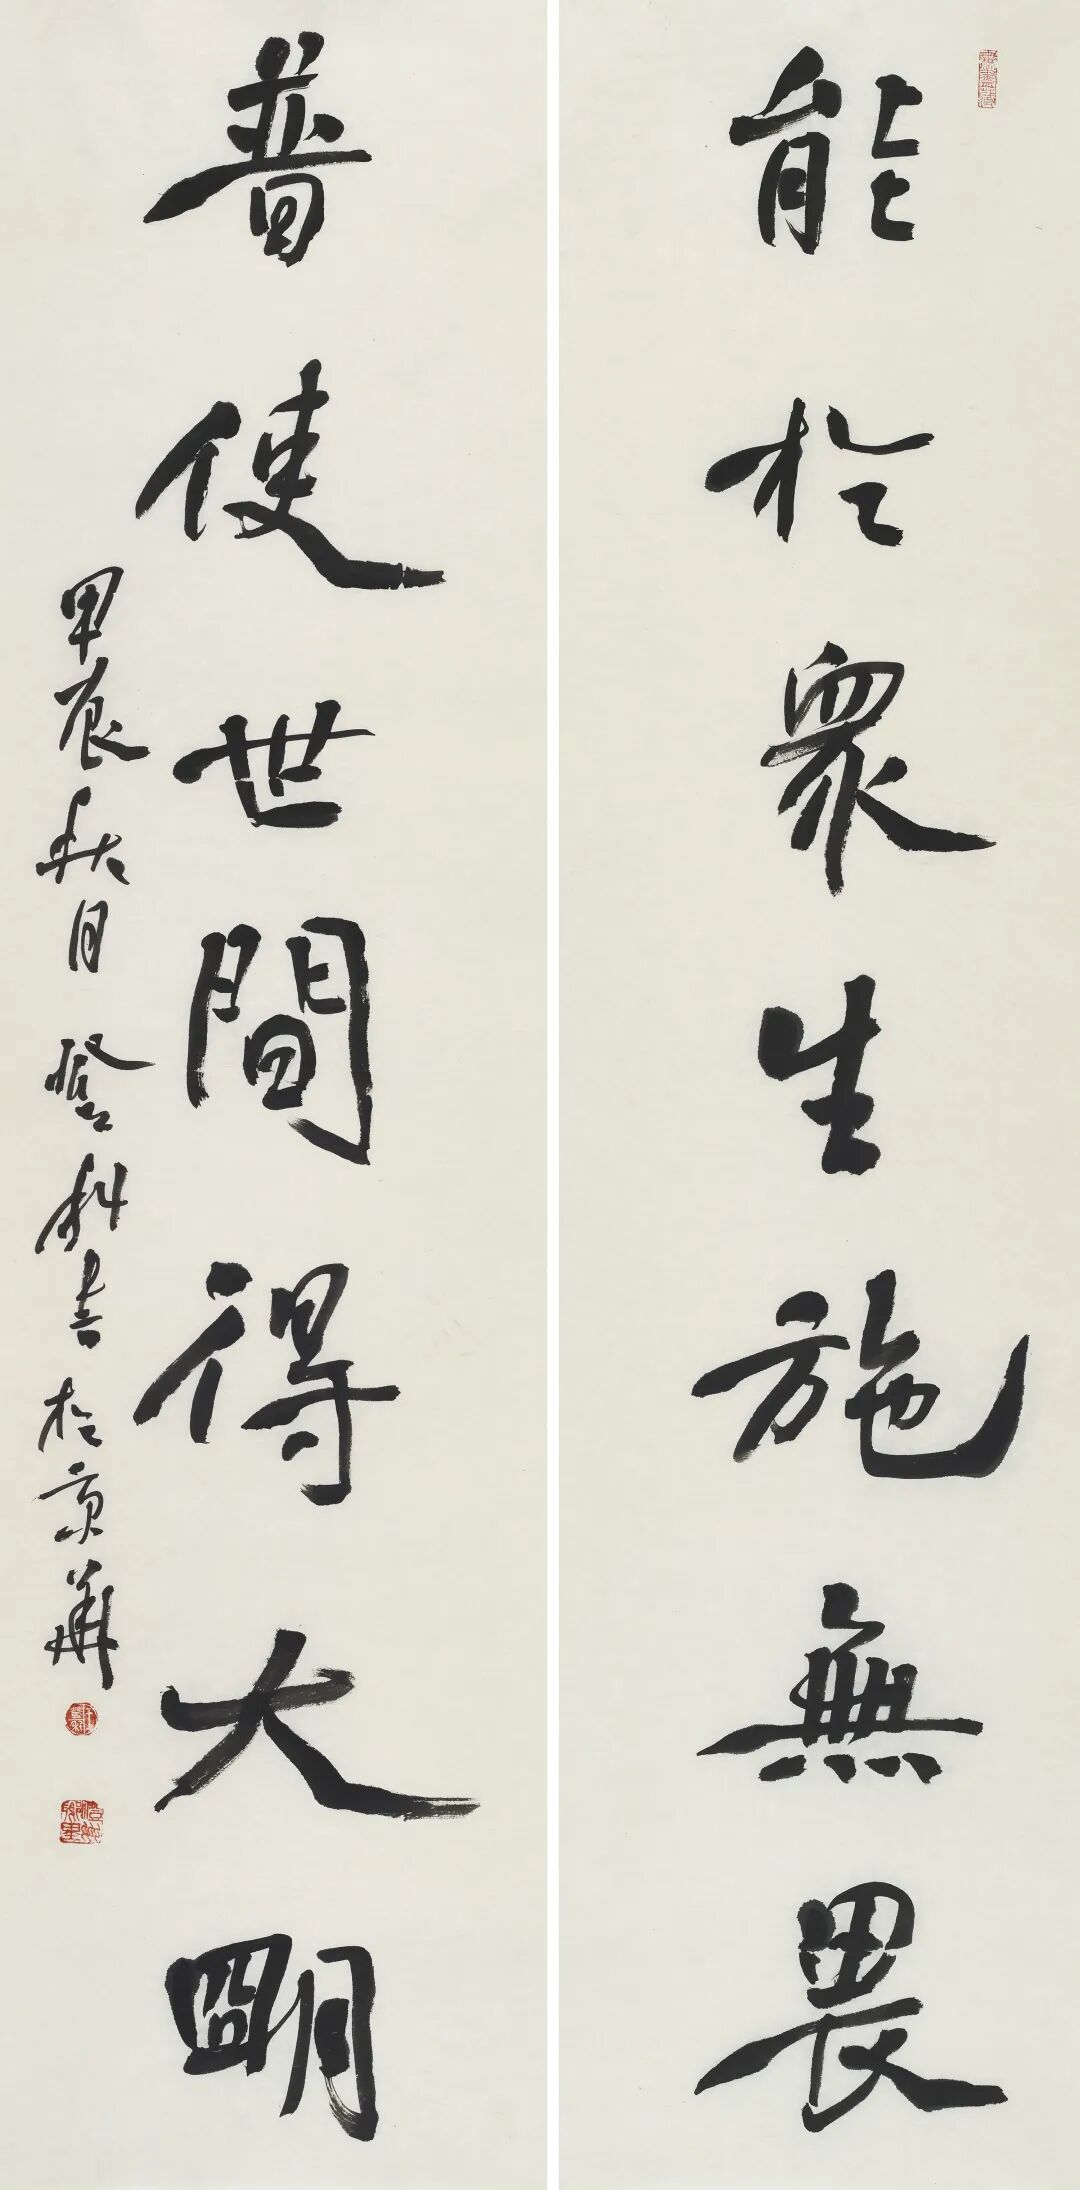 能於眾生施無畏
普使世間得大明
甲辰秋月登科書於京華